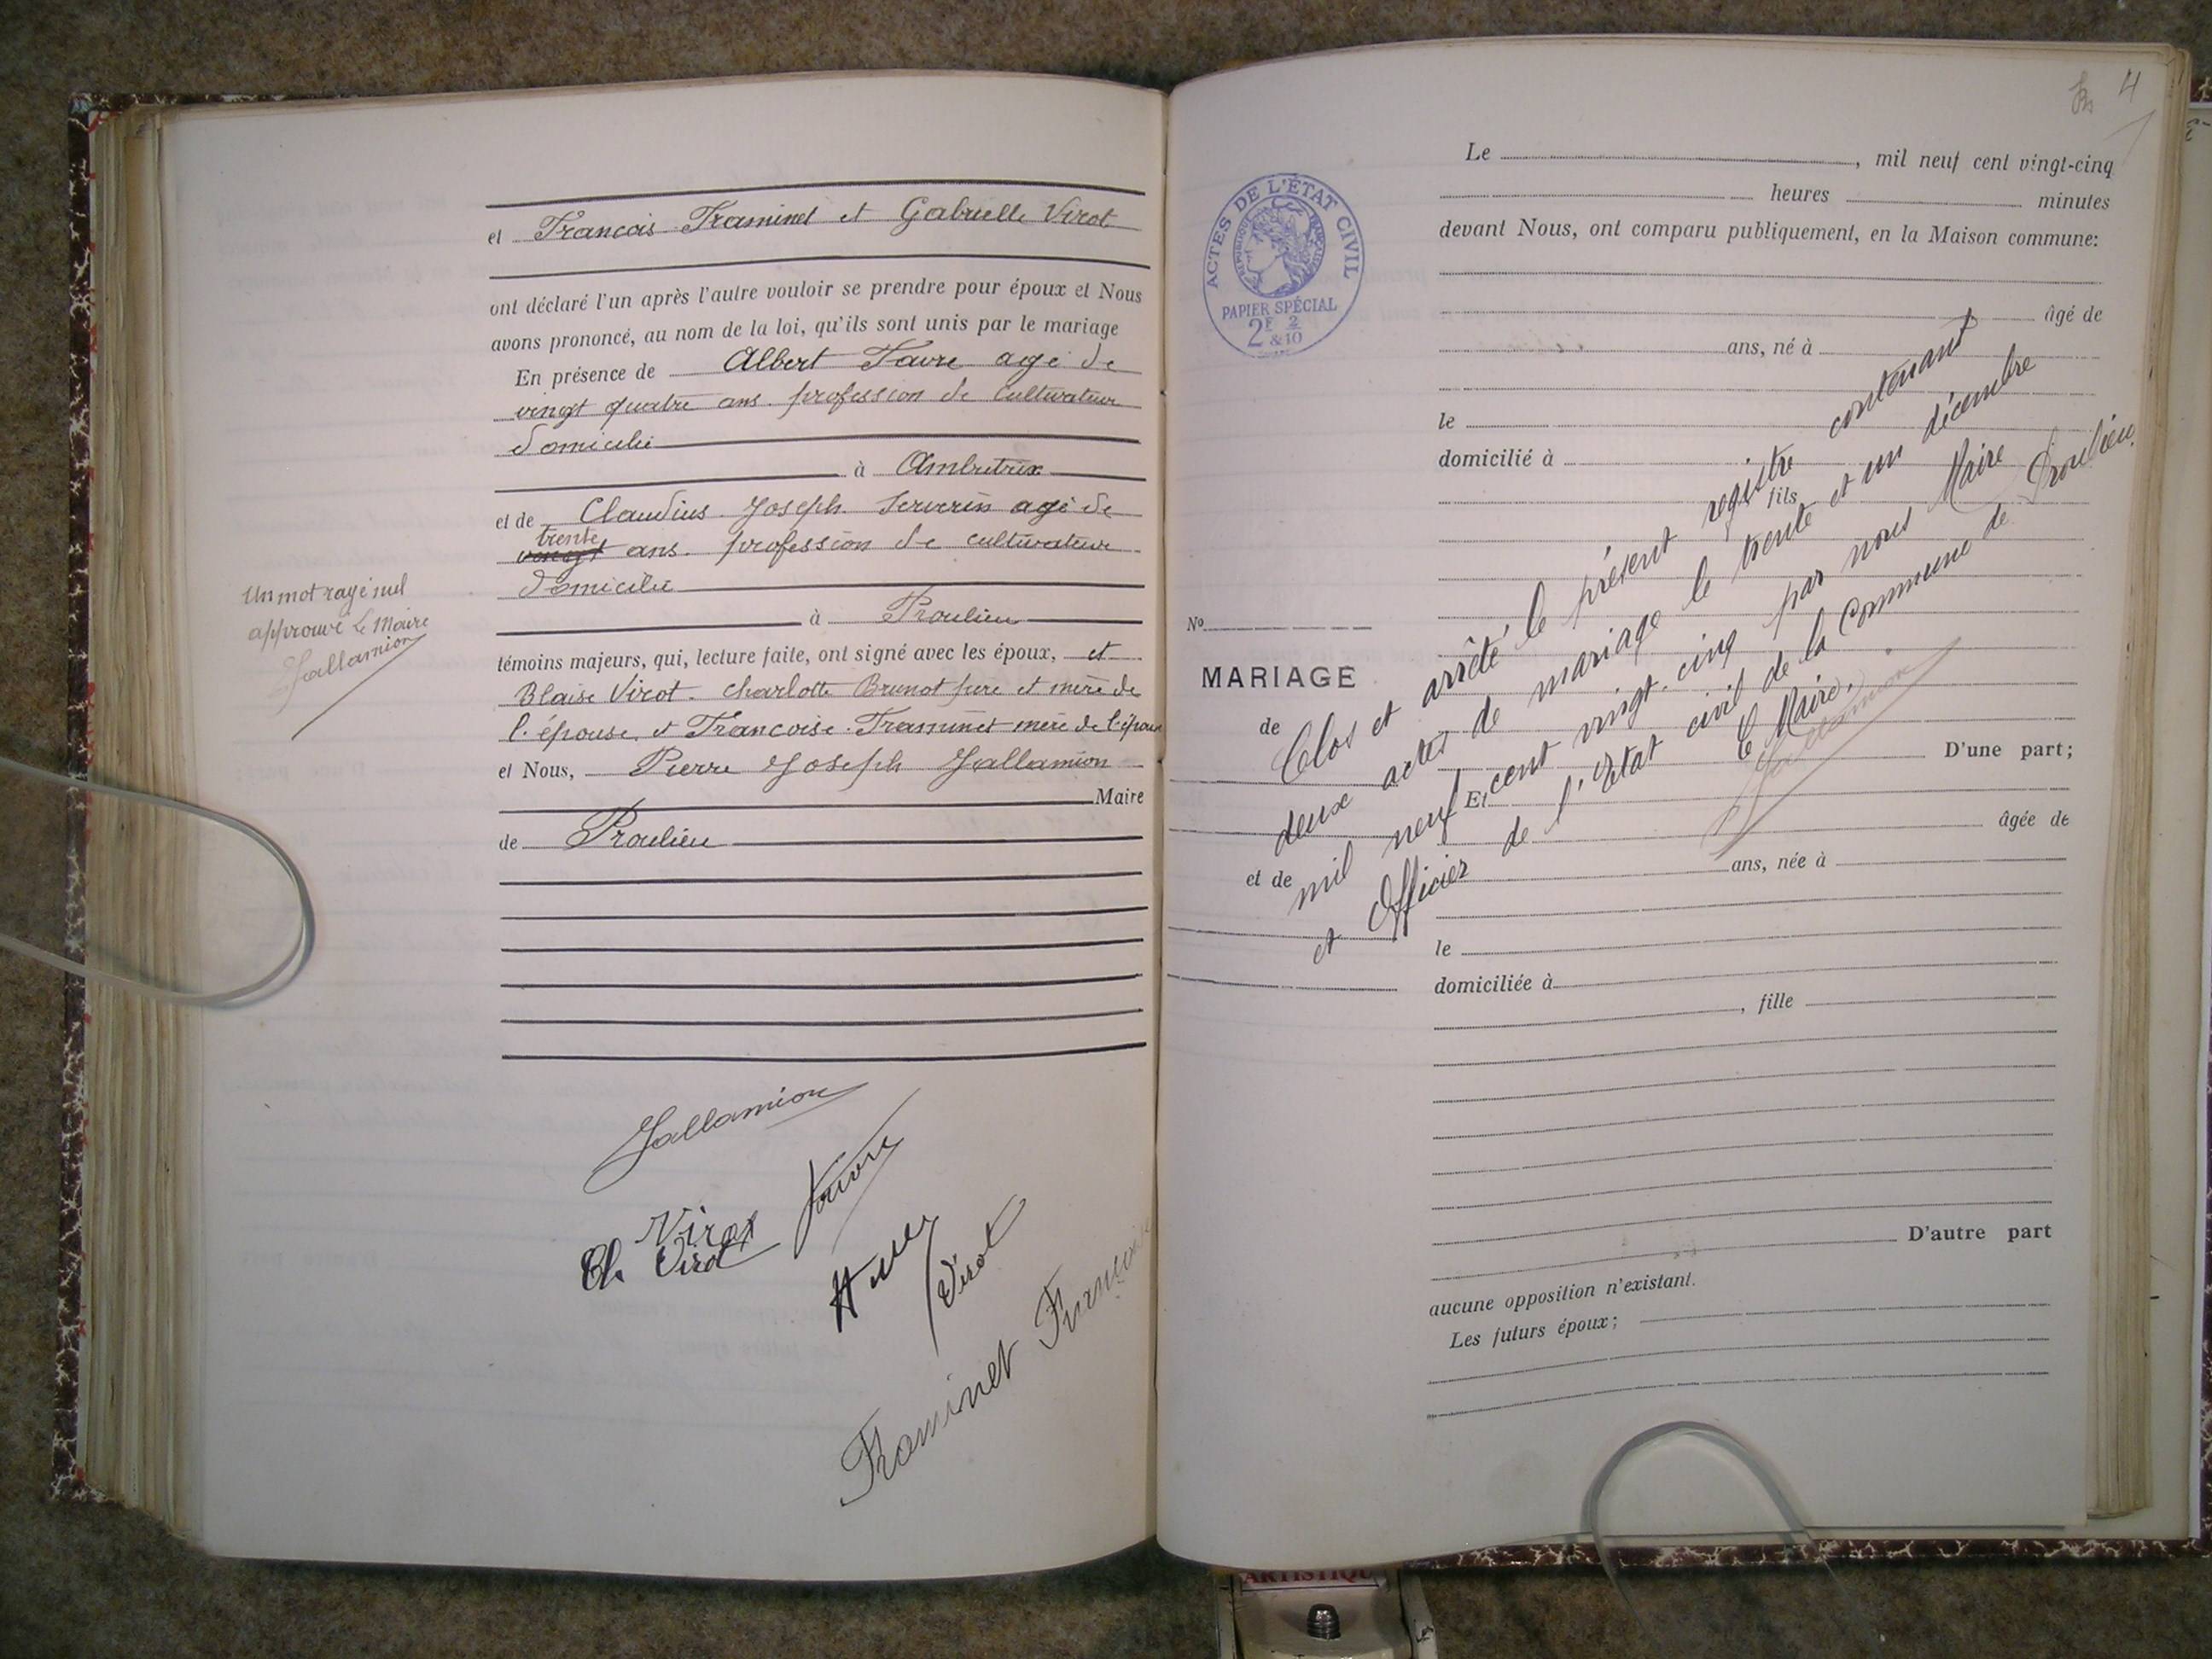 et François Framinet et Gabrielle Virot
ont déclaré l'un après l'autre vouloir se prendre pour époux et Nous
avons prononcé, au nom de la loi, qu'ils sont unis par le mariage
En présence de Albert Favre agé de
vingt quatre ans. profession de cultivateur
domicilié
à Ambutrix
et de Claudius Joseph Serverin agé de
trente
vingt ans. profession de cultivateur
domicilié
à Proulieu
Un mot rayé nul
approuvé Le Maire
Jallamion
témoins majeurs, qui, lecture faite, ont signé avec les époux, et
Blaise Virot. Charlotte Brunot père et mère de
l'épouse, et Francoise Framinet mère de l'époux
et Nous, Pierre Joseph Jallamion
Maire
de Proulieu
Jallamion
Favre
Virot
Ch. Virot
Virot
Framinet
4
ACTES DE L'ÉTAT CIVIL
RÉPUBLIQUE FRANÇAISE
PAPIER SPÉCIAL
2F & 2/10
Le , mil neuf cent vingt-cinq
heures minutes
devant Nous, ont comparu publiquement, en la Maison commune:
âgé de
ans, né à
le
domicilié à
fils
No
MARIAGE
de
et de
Clos et arrêté le présent registre contenant
deux actes de mariage le trente et un décembre
mil neuf cent vingt-cinq par nous Maire
et Officier de l'Etat civil de la Commune de Proulieu.
Le Maire,
Jallamion
D'une part;
Et
âgée de
ans, née à
le
domiciliée à
, fille
D'autre part
aucune opposition n'existant.
Les futurs époux;
ARTISTIQU